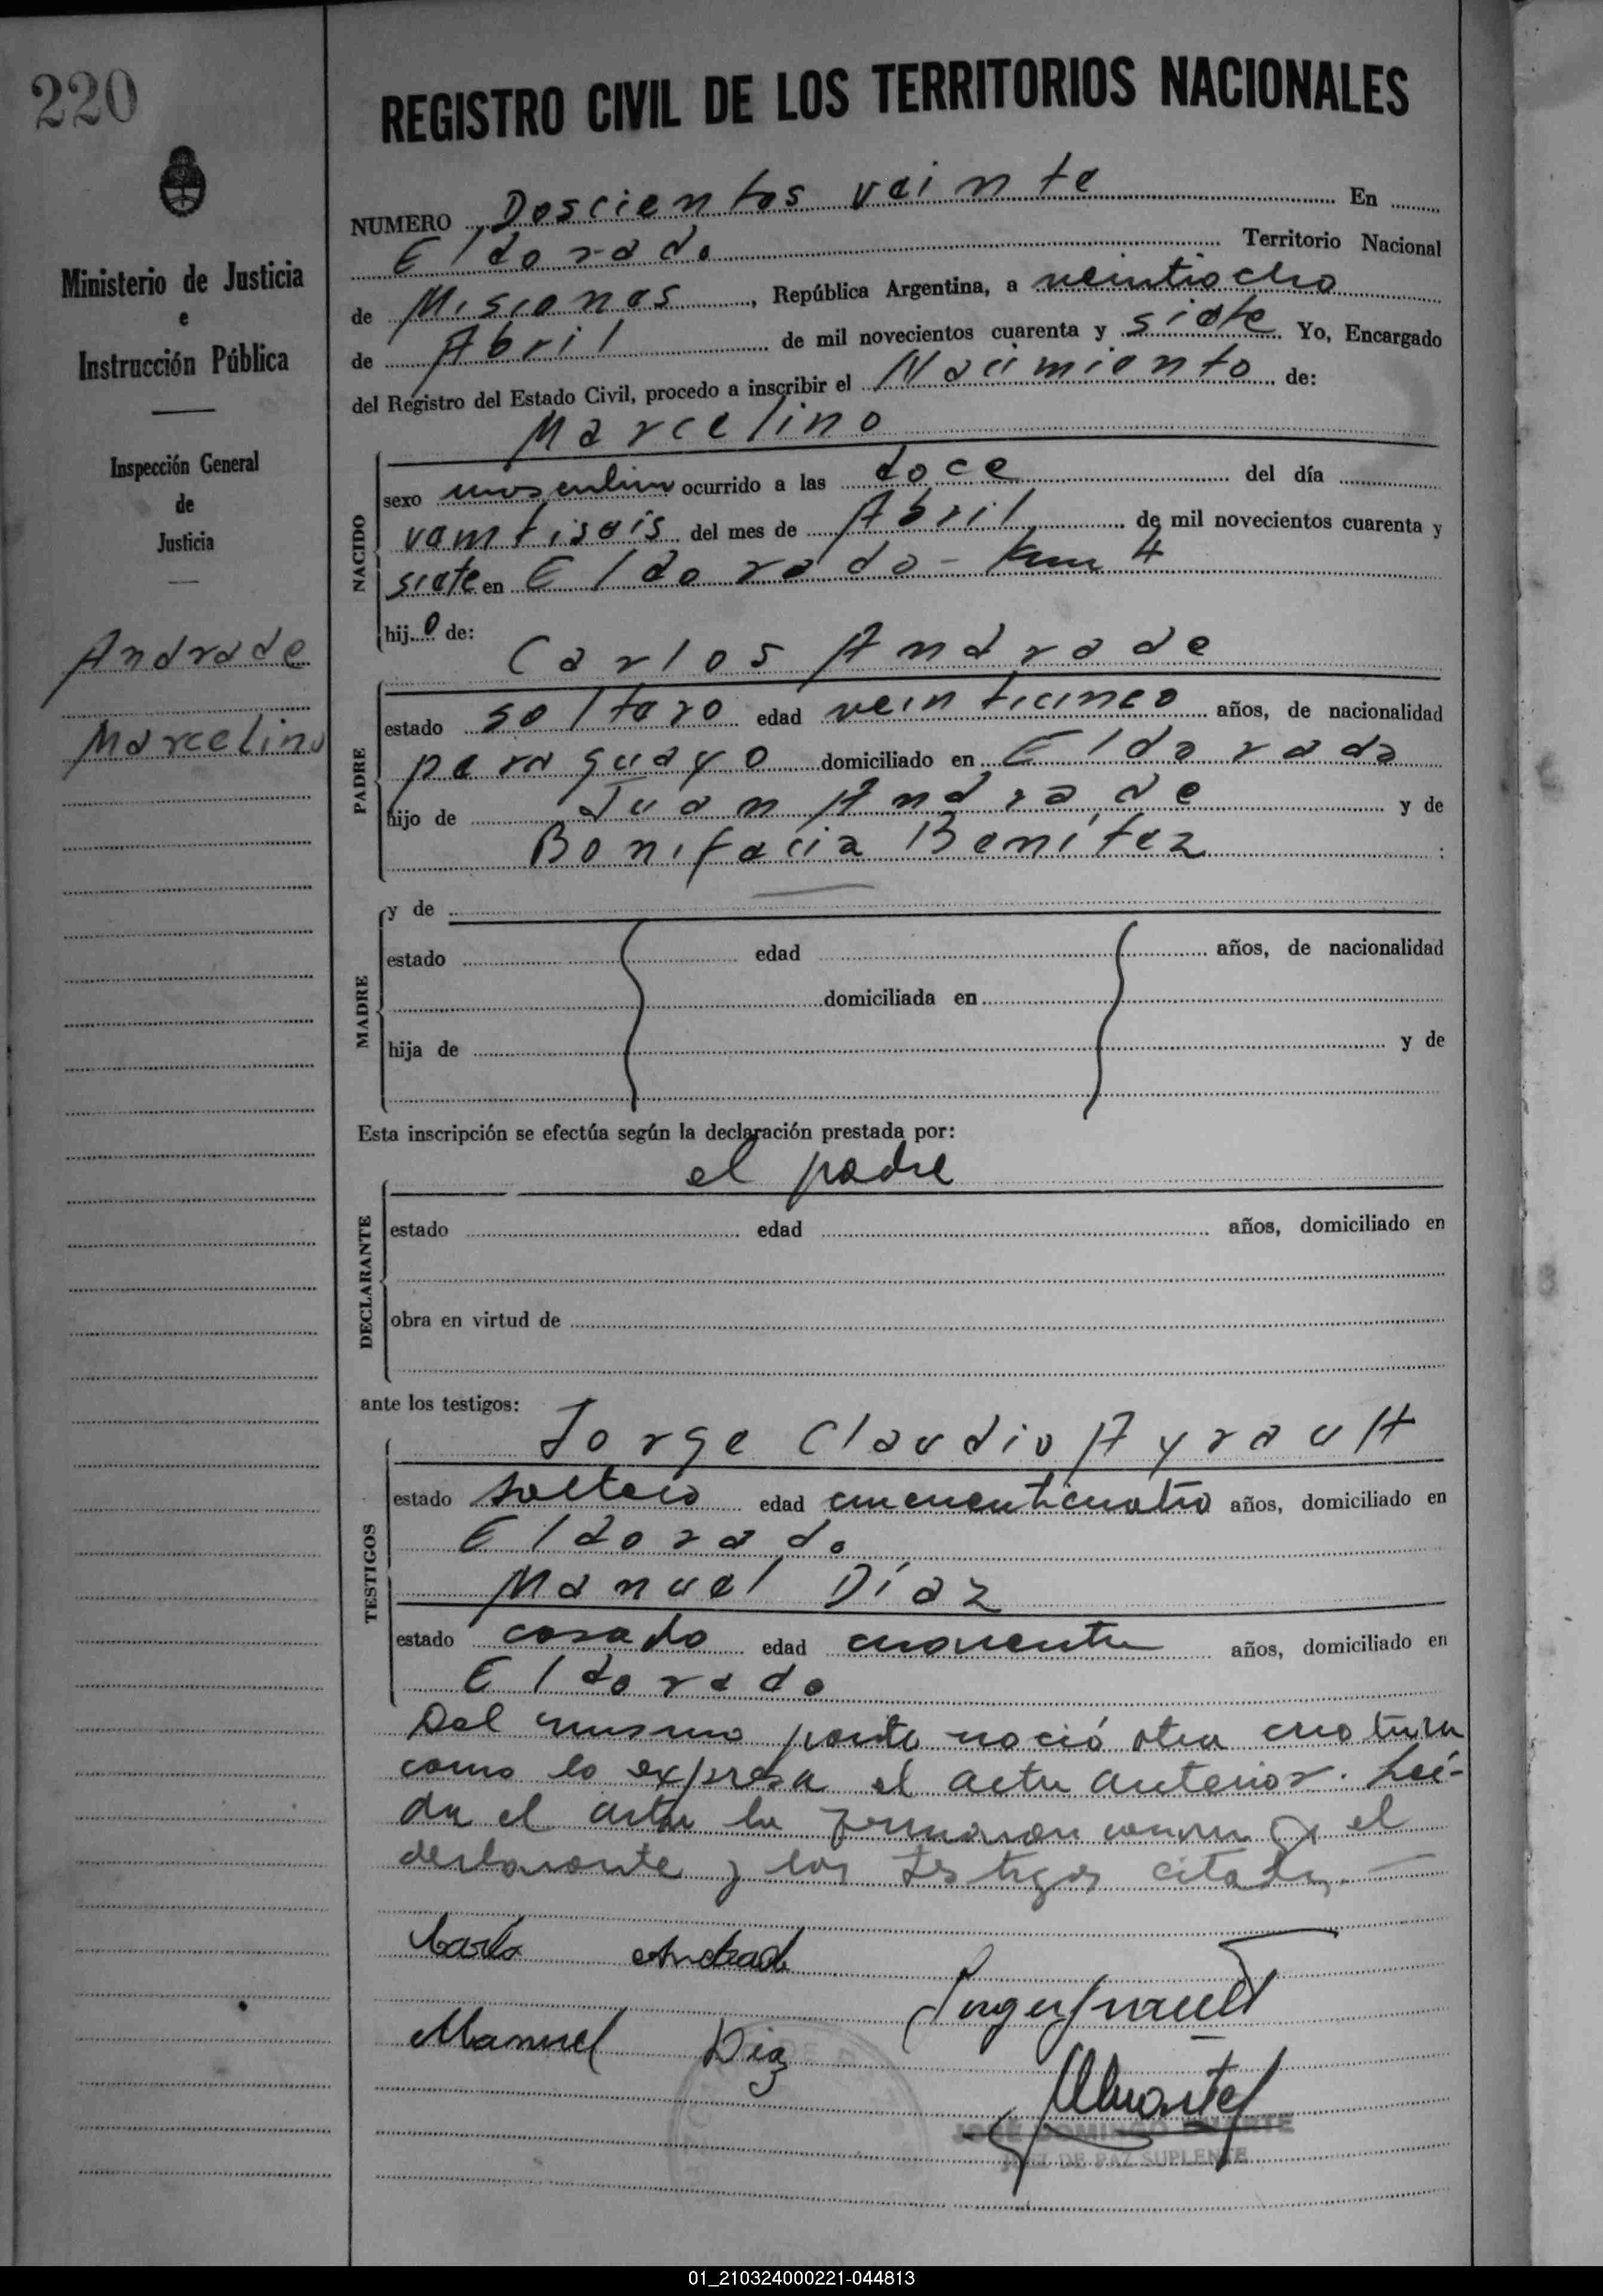 220
REGISTRO CIVIL DE LOS TERRITORIOS NACIONALES
Ministerio de Justicia
e
Instrucción Pública
Inspección General
de
Justicia
Andrade
Marcelino
NUMERO Doscientos veinte En
Eldorado Territorio Nacional
de Misiones, República Argentina, a veintiocho
de Abril de mil novecientos cuarenta y siete Yo, Encargado
del Registro del Estado Civil, procedo a inscribir el Nacimiento de:
Marcelino
NACIDO
sexo masculino ocurrido a las doce del día
veintiseis del mes de Abril de mil novecientos cuarenta y
siete en Eldorado - Km 4
hijo de:
Carlos Andrade
PADRE
estado soltero edad veinticinco años, de nacionalidad
paraguayo domiciliado en Eldorado
hijo de Juan Andrade y de
Bonifacia Benítez :
MADRE
y de
estado edad años, de nacionalidad
domiciliada en
hija de y de
Esta inscripción se efectúa según la declaración prestada por:
el padre
DECLARANTE
estado edad años, domiciliado en
obra en virtud de
ante los testigos:
TESTIGOS
Jorge Claudio Ayrault
estado soltero edad cincuenticuatro años, domiciliado en
Eldorado
Manuel Díaz
estado casado edad cuarenta años, domiciliado en
Eldorado
Del mismo parto nació otra criatura
como lo expresa el acta anterior. Leí-
da el acta la firmaron conmigo el
declarante y los testigos citados.
Carlos Andrade
Manuel Diaz
JOSÉ DOMINGO DUARTE
JUEZ DE PAZ SUPLENTE
01_210324000221-044813